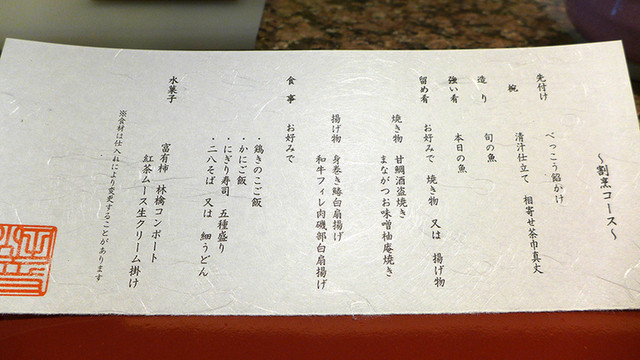 ～割烹コース～
先付け べっこう餡かけ
椀 清汁仕立て 相寄せ茶巾真丈
造り 旬の魚
強い肴 本日の魚
留め肴 お好みで 焼き物 又は 揚げ物
焼き物 甘鯛酒盗焼き
まながつお味噌柚庵焼き
揚げ物 身巻き鰊白扇揚げ
和牛フィレ肉磯部白扇揚げ
食事 お好みで
・鶏きのこご飯
・かにご飯
・にぎり寿司 五種盛り
・二八そば 又は 細うどん
水菓子 富有柿 林檎コンポート
紅茶ムース生クリーム掛け
※食材は仕入れにより変更することがあります